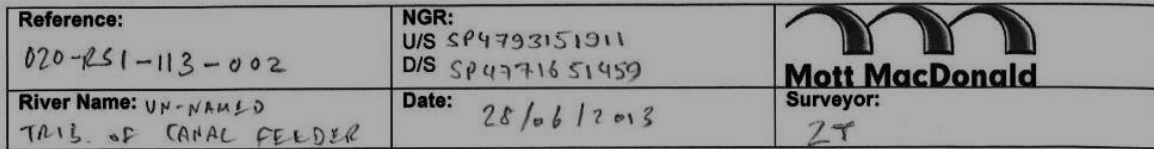 Reference:
020-RS1-113-002
NGR:
U/S SP4793151911
D/S SP4771651459
Mott MacDonald
River Name: UN-NAMED
TRIB. OF CANAL FEEDER
Date:
28/06/2013
Surveyor:
ZT